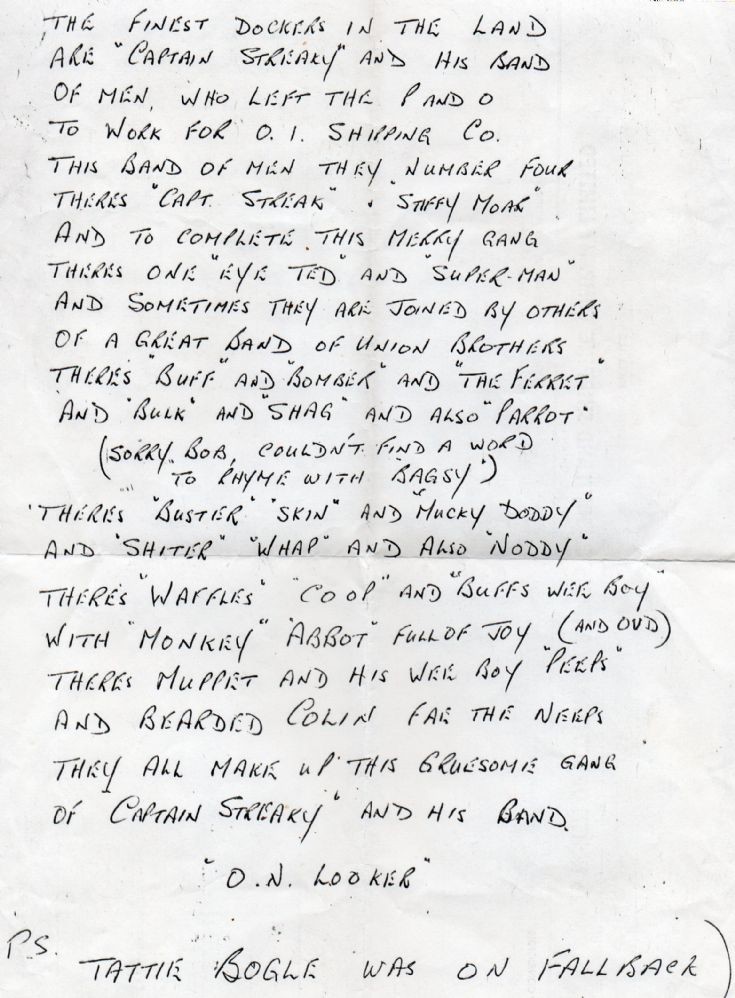 THE FINEST DOCKERS IN THE LAND
ARE "CAPTAIN STREAKY" AND HIS BAND
OF MEN, WHO LEFT THE P AND O
TO WORK FOR O. I. SHIPPING CO.
THIS BAND OF MEN THEY NUMBER FOUR
THERES "CAPT. STREAK" & "STIFFY MOAR"
AND TO COMPLETE THIS MERRY GANG
THERES ONE "EYE TED" AND "SUPER-MAN"
AND SOMETIMES THEY ARE JOINED BY OTHERS
OF A GREAT BAND OF UNION BROTHERS
THERE'S "BUFF" AND "BOMBER" AND "THE FERRET"
AND "BULK" AND "SHAG" AND ALSO "PARROT"
(SORRY BOB, COULDN'T FIND A WORD
TO RHYME WITH "BAGSY")
THERES "BUSTER" "SKIN" AND "MUCKY DODDY"
AND "SHITER" "WHAP" AND ALSO "NODDY"
THERE'S "WAFFLES" "COOP" AND "BUFFS WEE BOY"
WITH "MONKEY" "ABBOT" FULL OF JOY (AND OVD)
THERES MUPPET AND HIS WEE BOY "PEEPS"
AND BEARDED COLIN FAE THE NEEPS
THEY ALL MAKE UP THIS GRUESOME GANG
OF CAPTAIN STREAKY" AND HIS BAND.
"O.N. LOOKER"
P.S.
TATTIE BOGLE WAS ON FALLBACK)